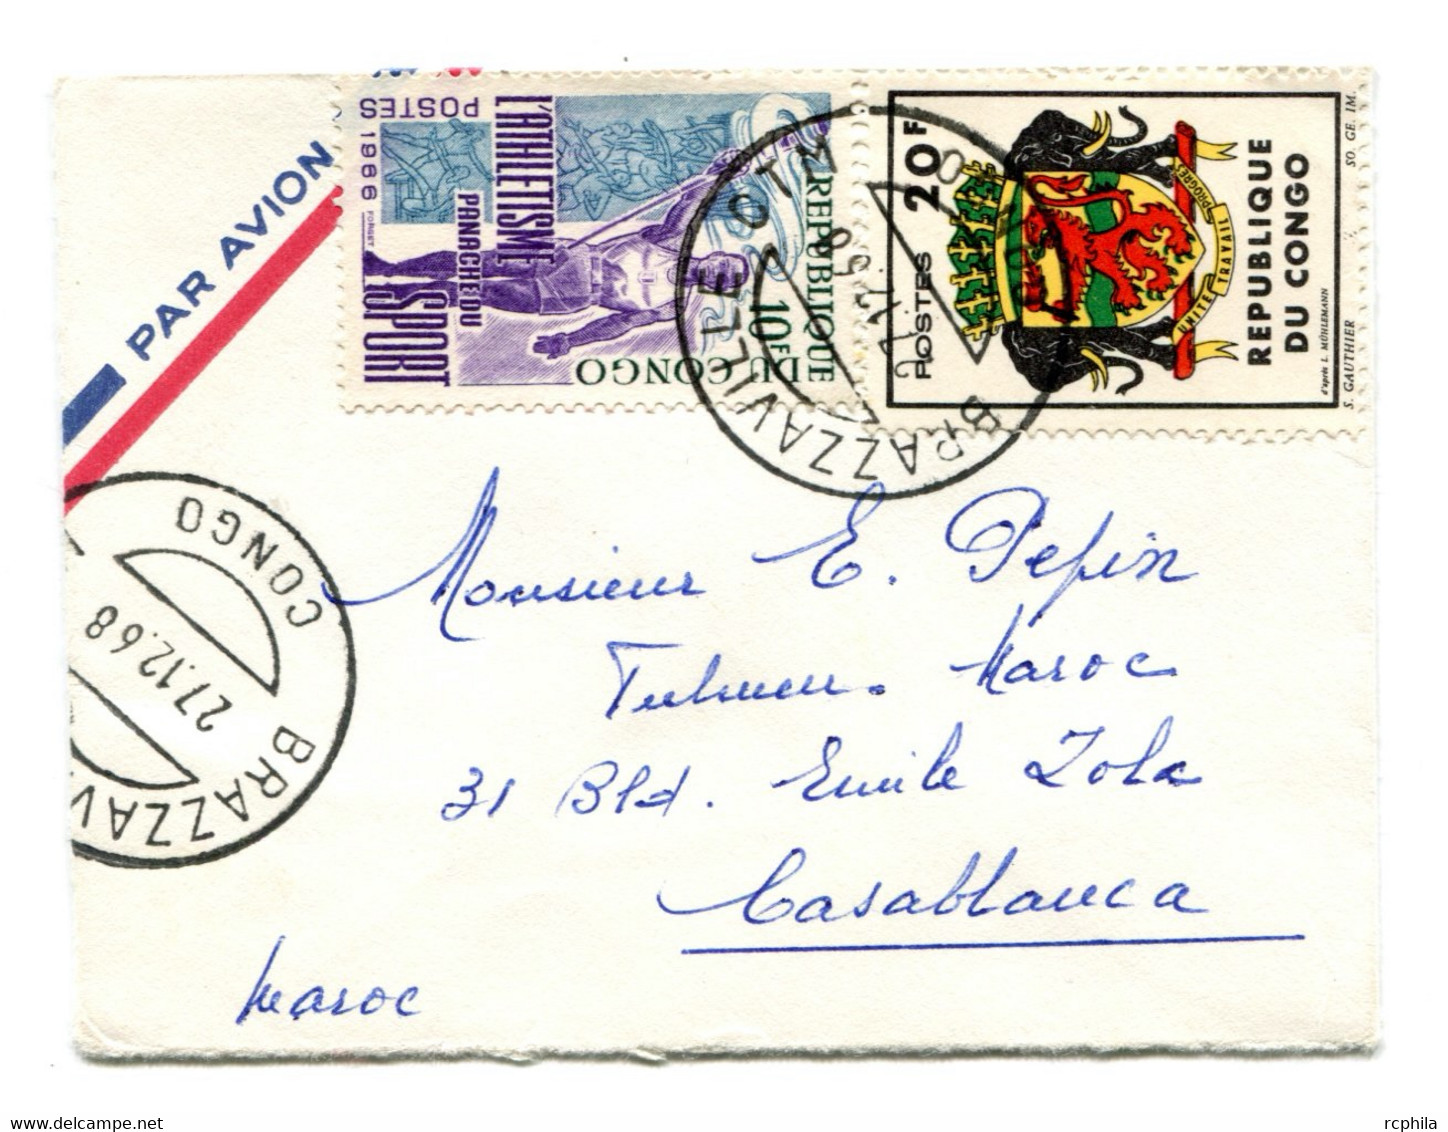 PAR AVION
L'ATHLETISME
PANACHE DU
SPORT
POSTES 1966
FORGET
REPUBLIQUE
DU CONGO
10F
POSTES 20F
REPUBLIQUE
DU CONGO
UNITE TRAVAIL PROGRES
d'après L. MÜHLEMANN
S. GAUTHIER SO. GE. IM.
BRAZZAVILLE OTM
CONGO
27.12.68
BRAZZAV
Monsieur E. Pepin
Maroc
31 Bld. Emile Zola
Casablanca
Maroc
rcphila